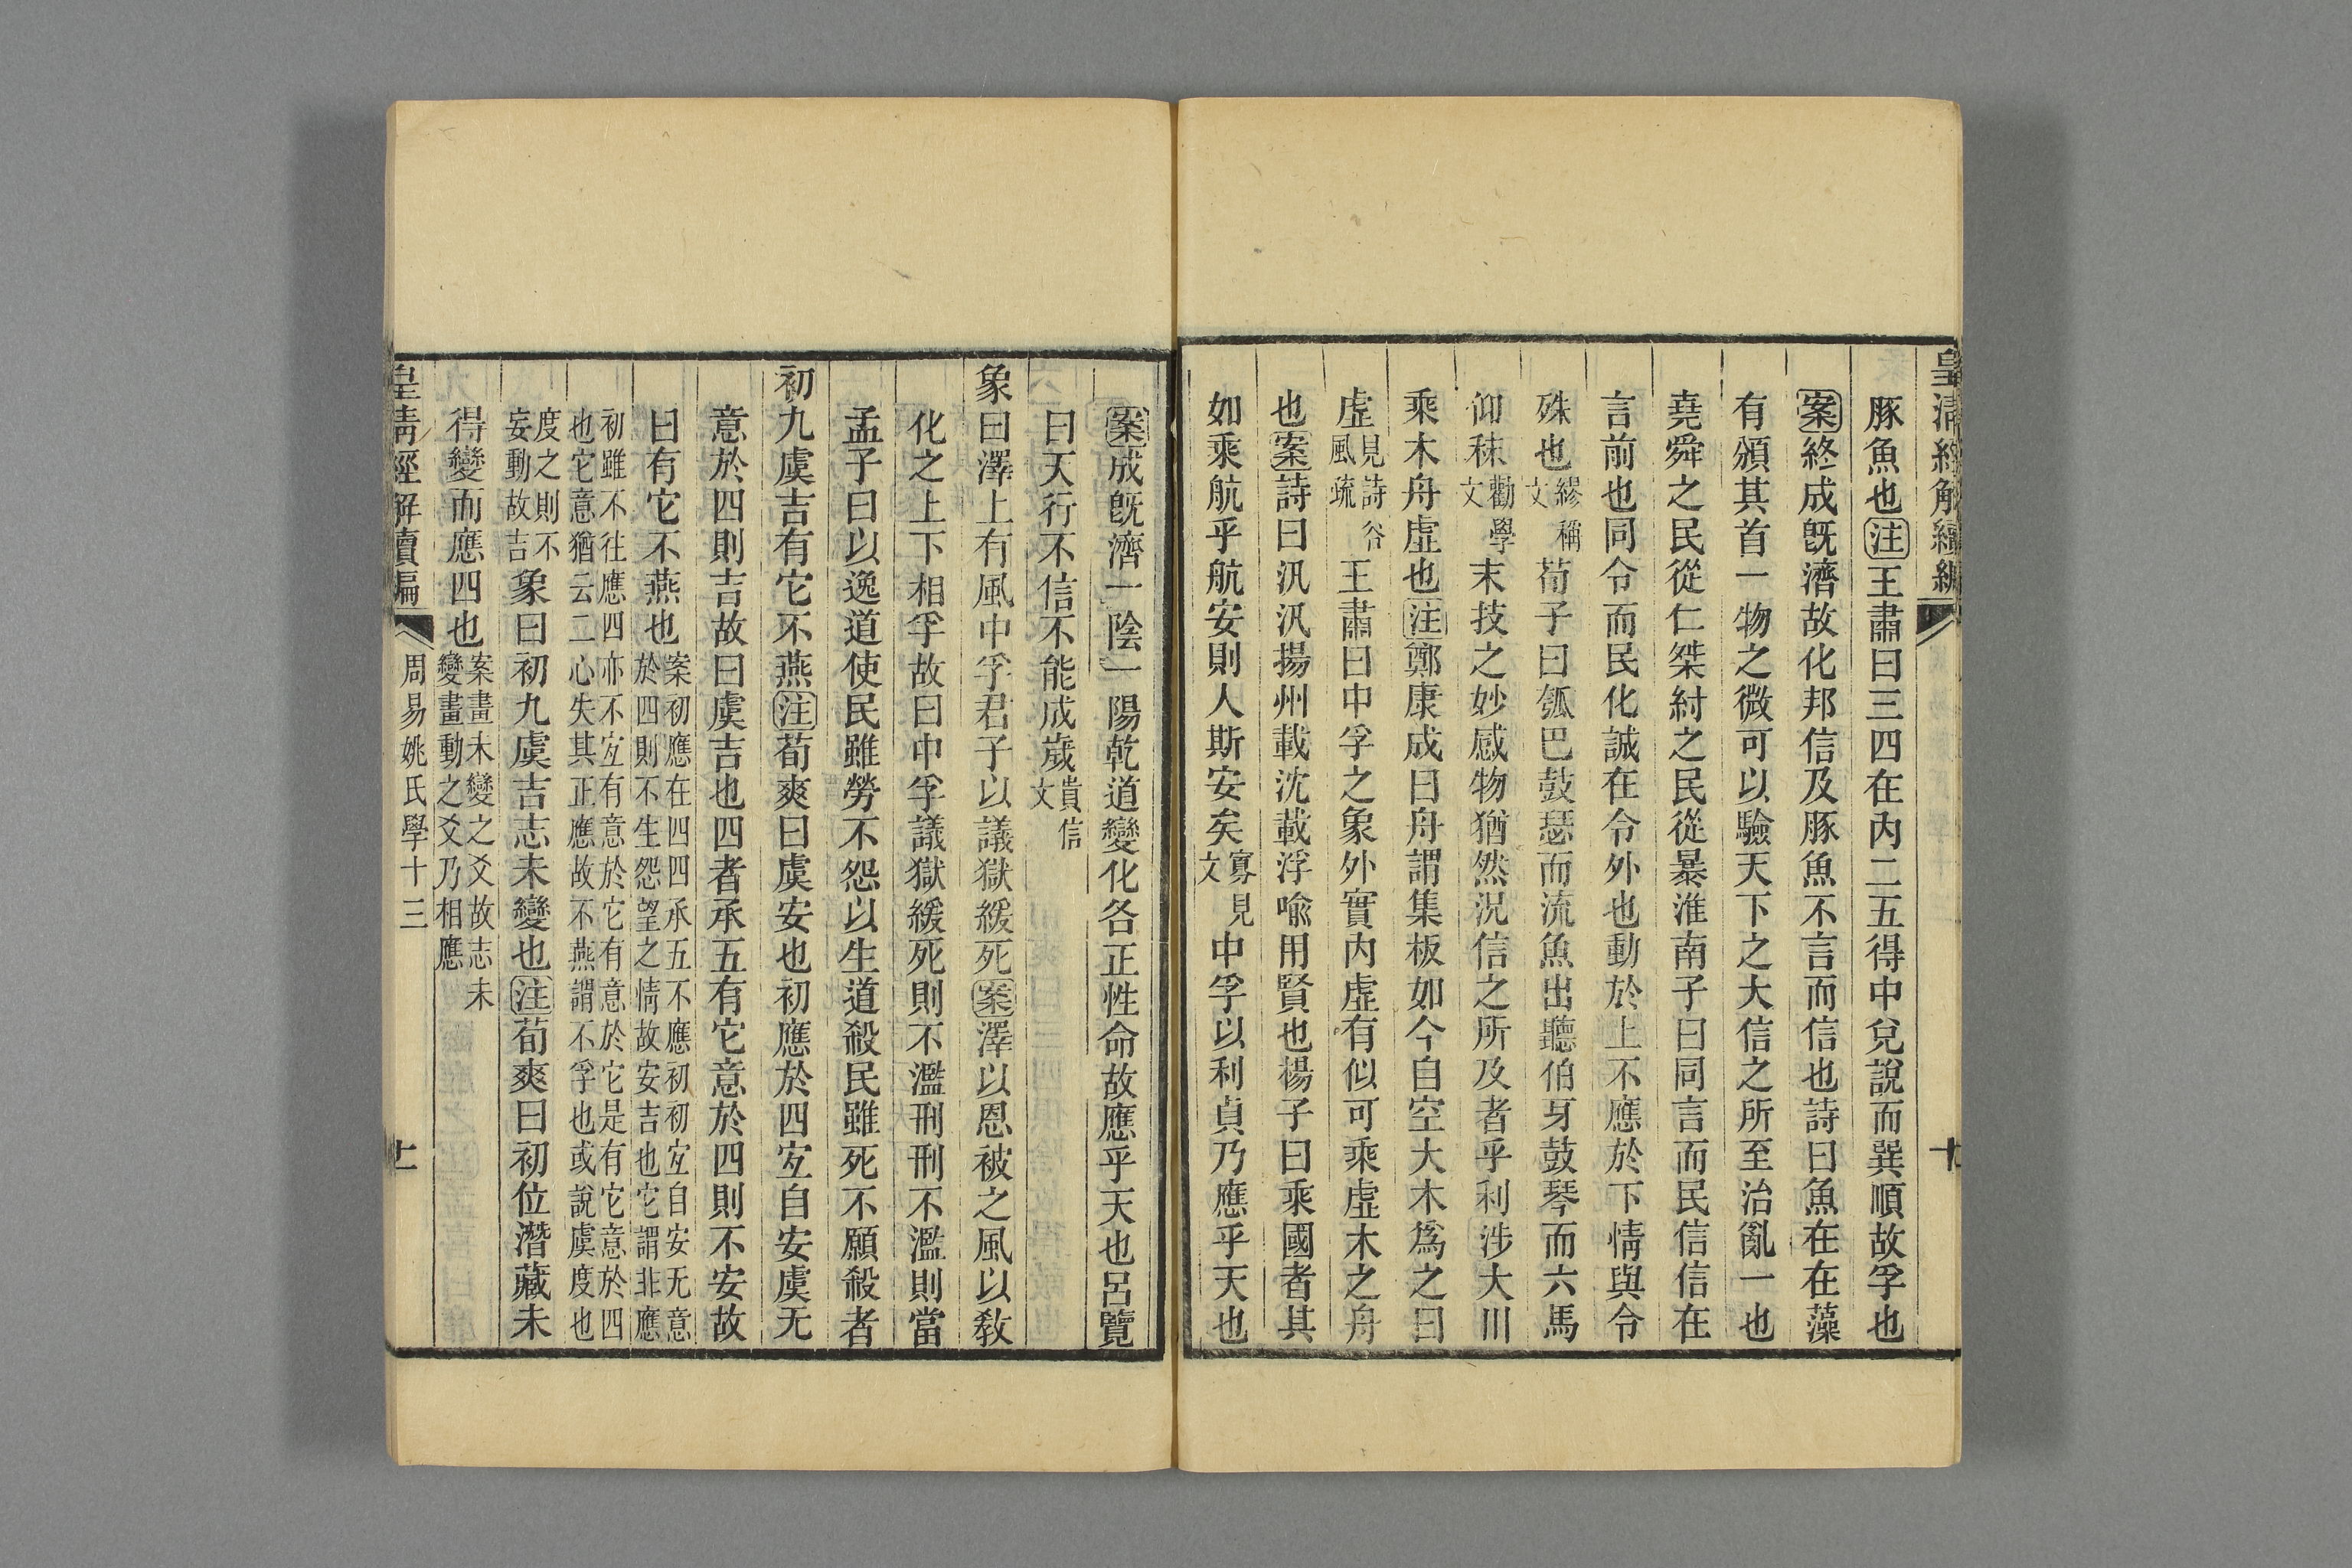 皇清經解續編
十
豚魚也注王肅曰三四在內二五得中兌說而巽順故孚也
案終成旣濟故化邦信及豚魚不言而信也詩曰魚在在藻
有頒其首一物之微可以驗天下之大信之所至治亂一也
堯舜之民從仁桀紂之民從暴淮南子曰同言而民信信在
言前也同令而民化誠在令外也動於上不應於下情與令
殊也繆稱文荀子曰瓠巴鼓瑟而流魚出聽伯牙鼓琴而六馬
仰秣勸學文末技之妙感物猶然況信之所及者乎利涉大川
乘木舟虛也注鄭康成曰舟謂集板如今自空大木爲之曰
虛見詩谷風疏王肅曰中孚之象外實內虛有似可乘虛木之舟
也案詩曰汎汎揚州載沈載浮喻用賢也楊子曰乘國者其
如乘航乎航安則人斯安矣寡見文中孚以利貞乃應乎天也
案成旣濟一陰一陽乾道變化各正性命故應乎天也呂覽
曰天行不信不能成歲貴信文
象曰澤上有風中孚君子以議獄緩死案澤以恩被之風以敎
化之上下相孚故曰中孚議獄緩死則不濫刑刑不濫則當
孟子曰以逸道使民雖勞不怨以生道殺民雖死不願殺者
初九虞吉有它不燕注荀爽曰虞安也初應於四宐自安虞无
意於四則吉故曰虞吉也四者承五有它意於四則不安故
曰有它不燕也案初應在四四承五不應初初宐自安无意
於四則不生怨望之情故安吉也它謂非應
初雖不往應四亦不宐有意於它有意於它是有它意於四
也它意猶云二心失其正應故不燕謂不孚也或說虞度也
度之則不妄動故吉象曰初九虞吉志未變也注荀爽曰初位潛藏未
得變而應四也案畫未變之爻故志未
變畫動之爻乃相應
皇清經解續編
周易姚氏學十三
十一